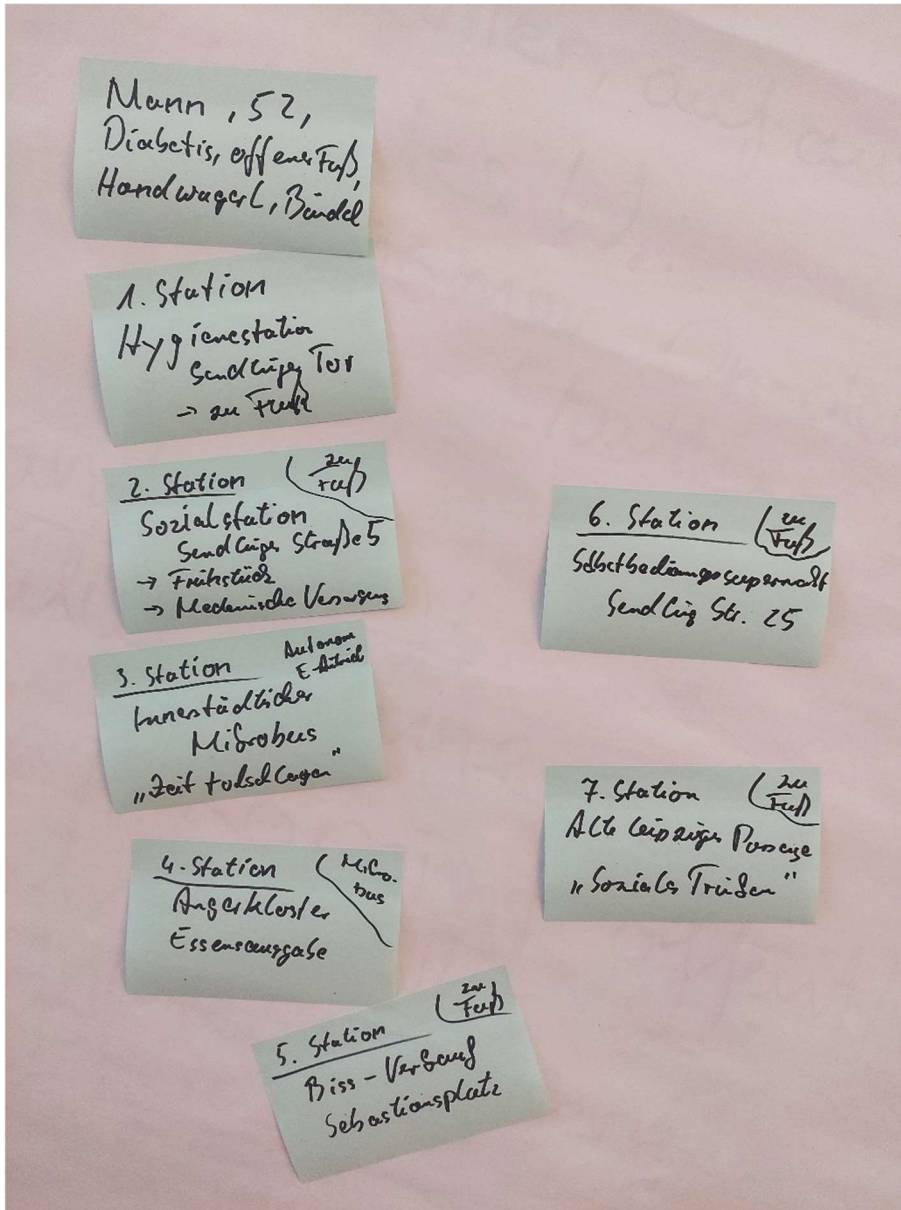 Mann, 52,
Diabetis, offener Fuß,
Handwagerl, Bündel
1. Station
Hygienestation
Sendlinger Tor
→ zu Fuß
2. Station
zu
Fuß
Sozialstation
Sendlinger Straße 5
→ Frühstück
→ Medizinische Versorgung
3. Station
Autonom
E-Antrieb
Innerstädtischer
Mikrobus
„Zeit totschlagen"
4. Station
Mikro-
bus
Angerkloster
Essensausgabe
5. Station
zu
Fuß
Biss-Verkauf
Sebastiansplatz
6. Station
zu
Fuß
Selbstbedienungssupermarkt
Sendling Str. 25
7. Station
zu
Fuß
Alte Leipziger Passage
„Soziales Trinken"